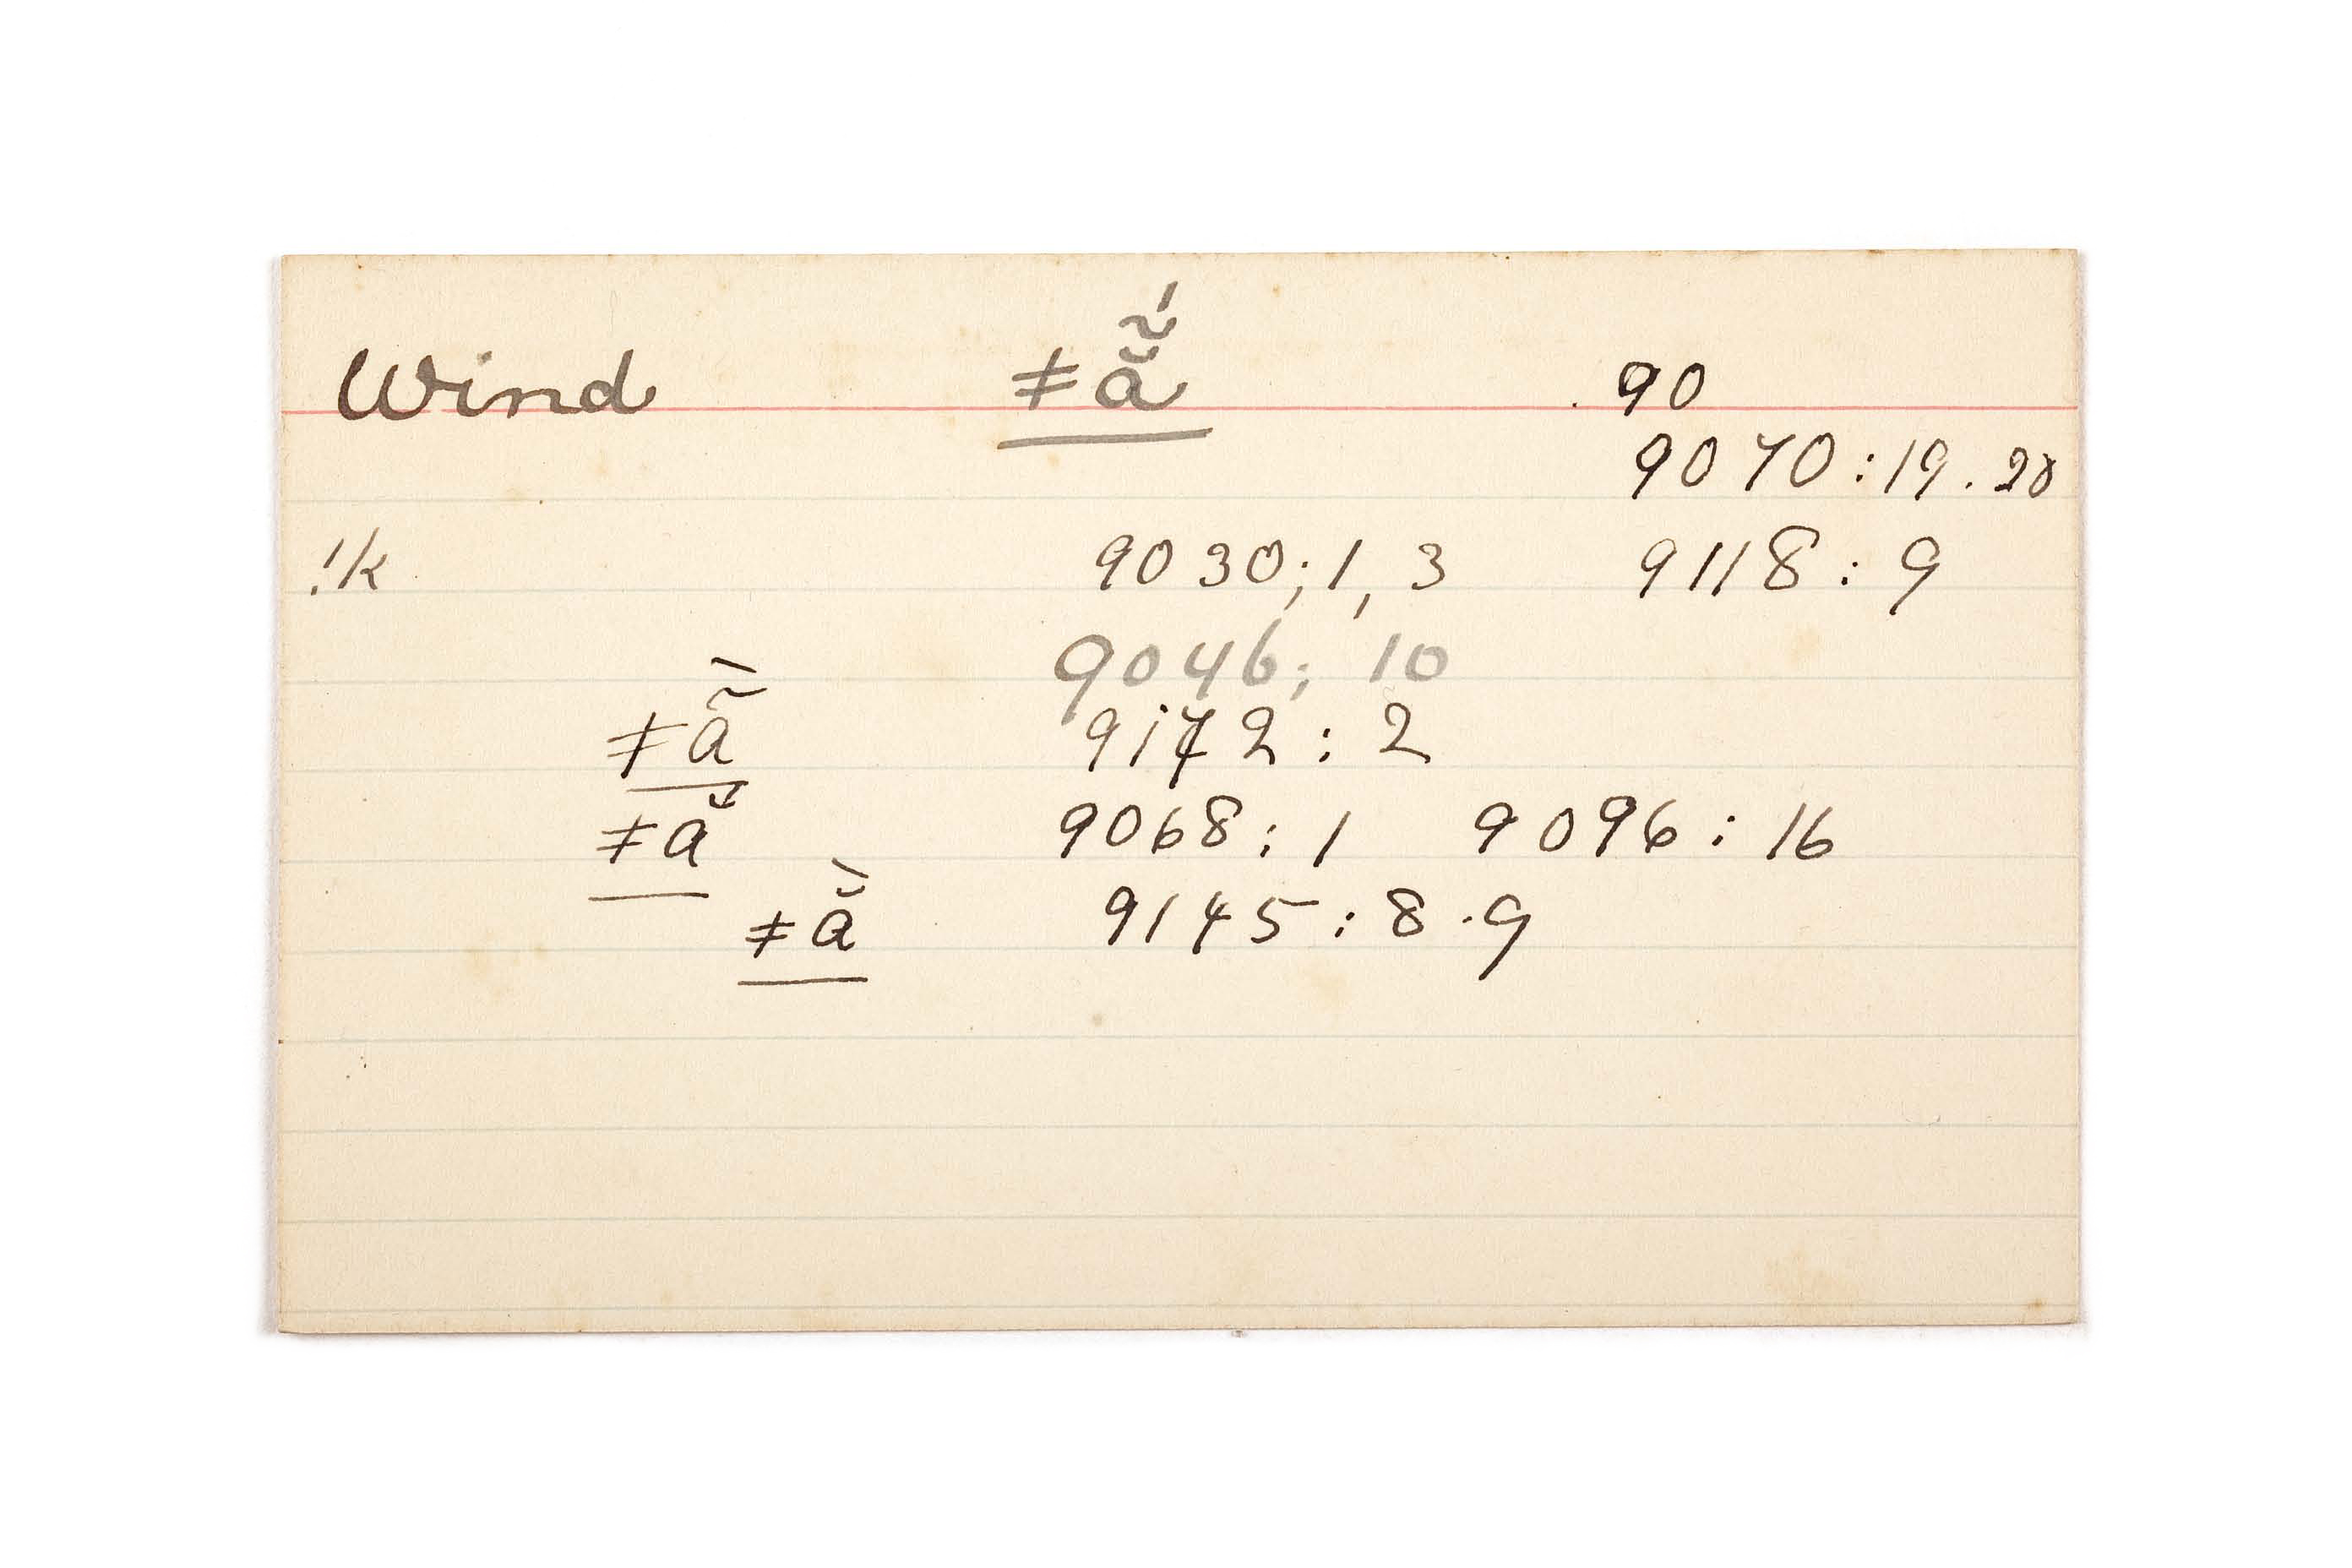 Wind ǂã̆́ 90
9070:19.20
!k 9030;1,3 9118:9
9046; 10
ǂã̀ 9142:2
ǂă 9068:1 9096:16
ǂằ 9145:8.9